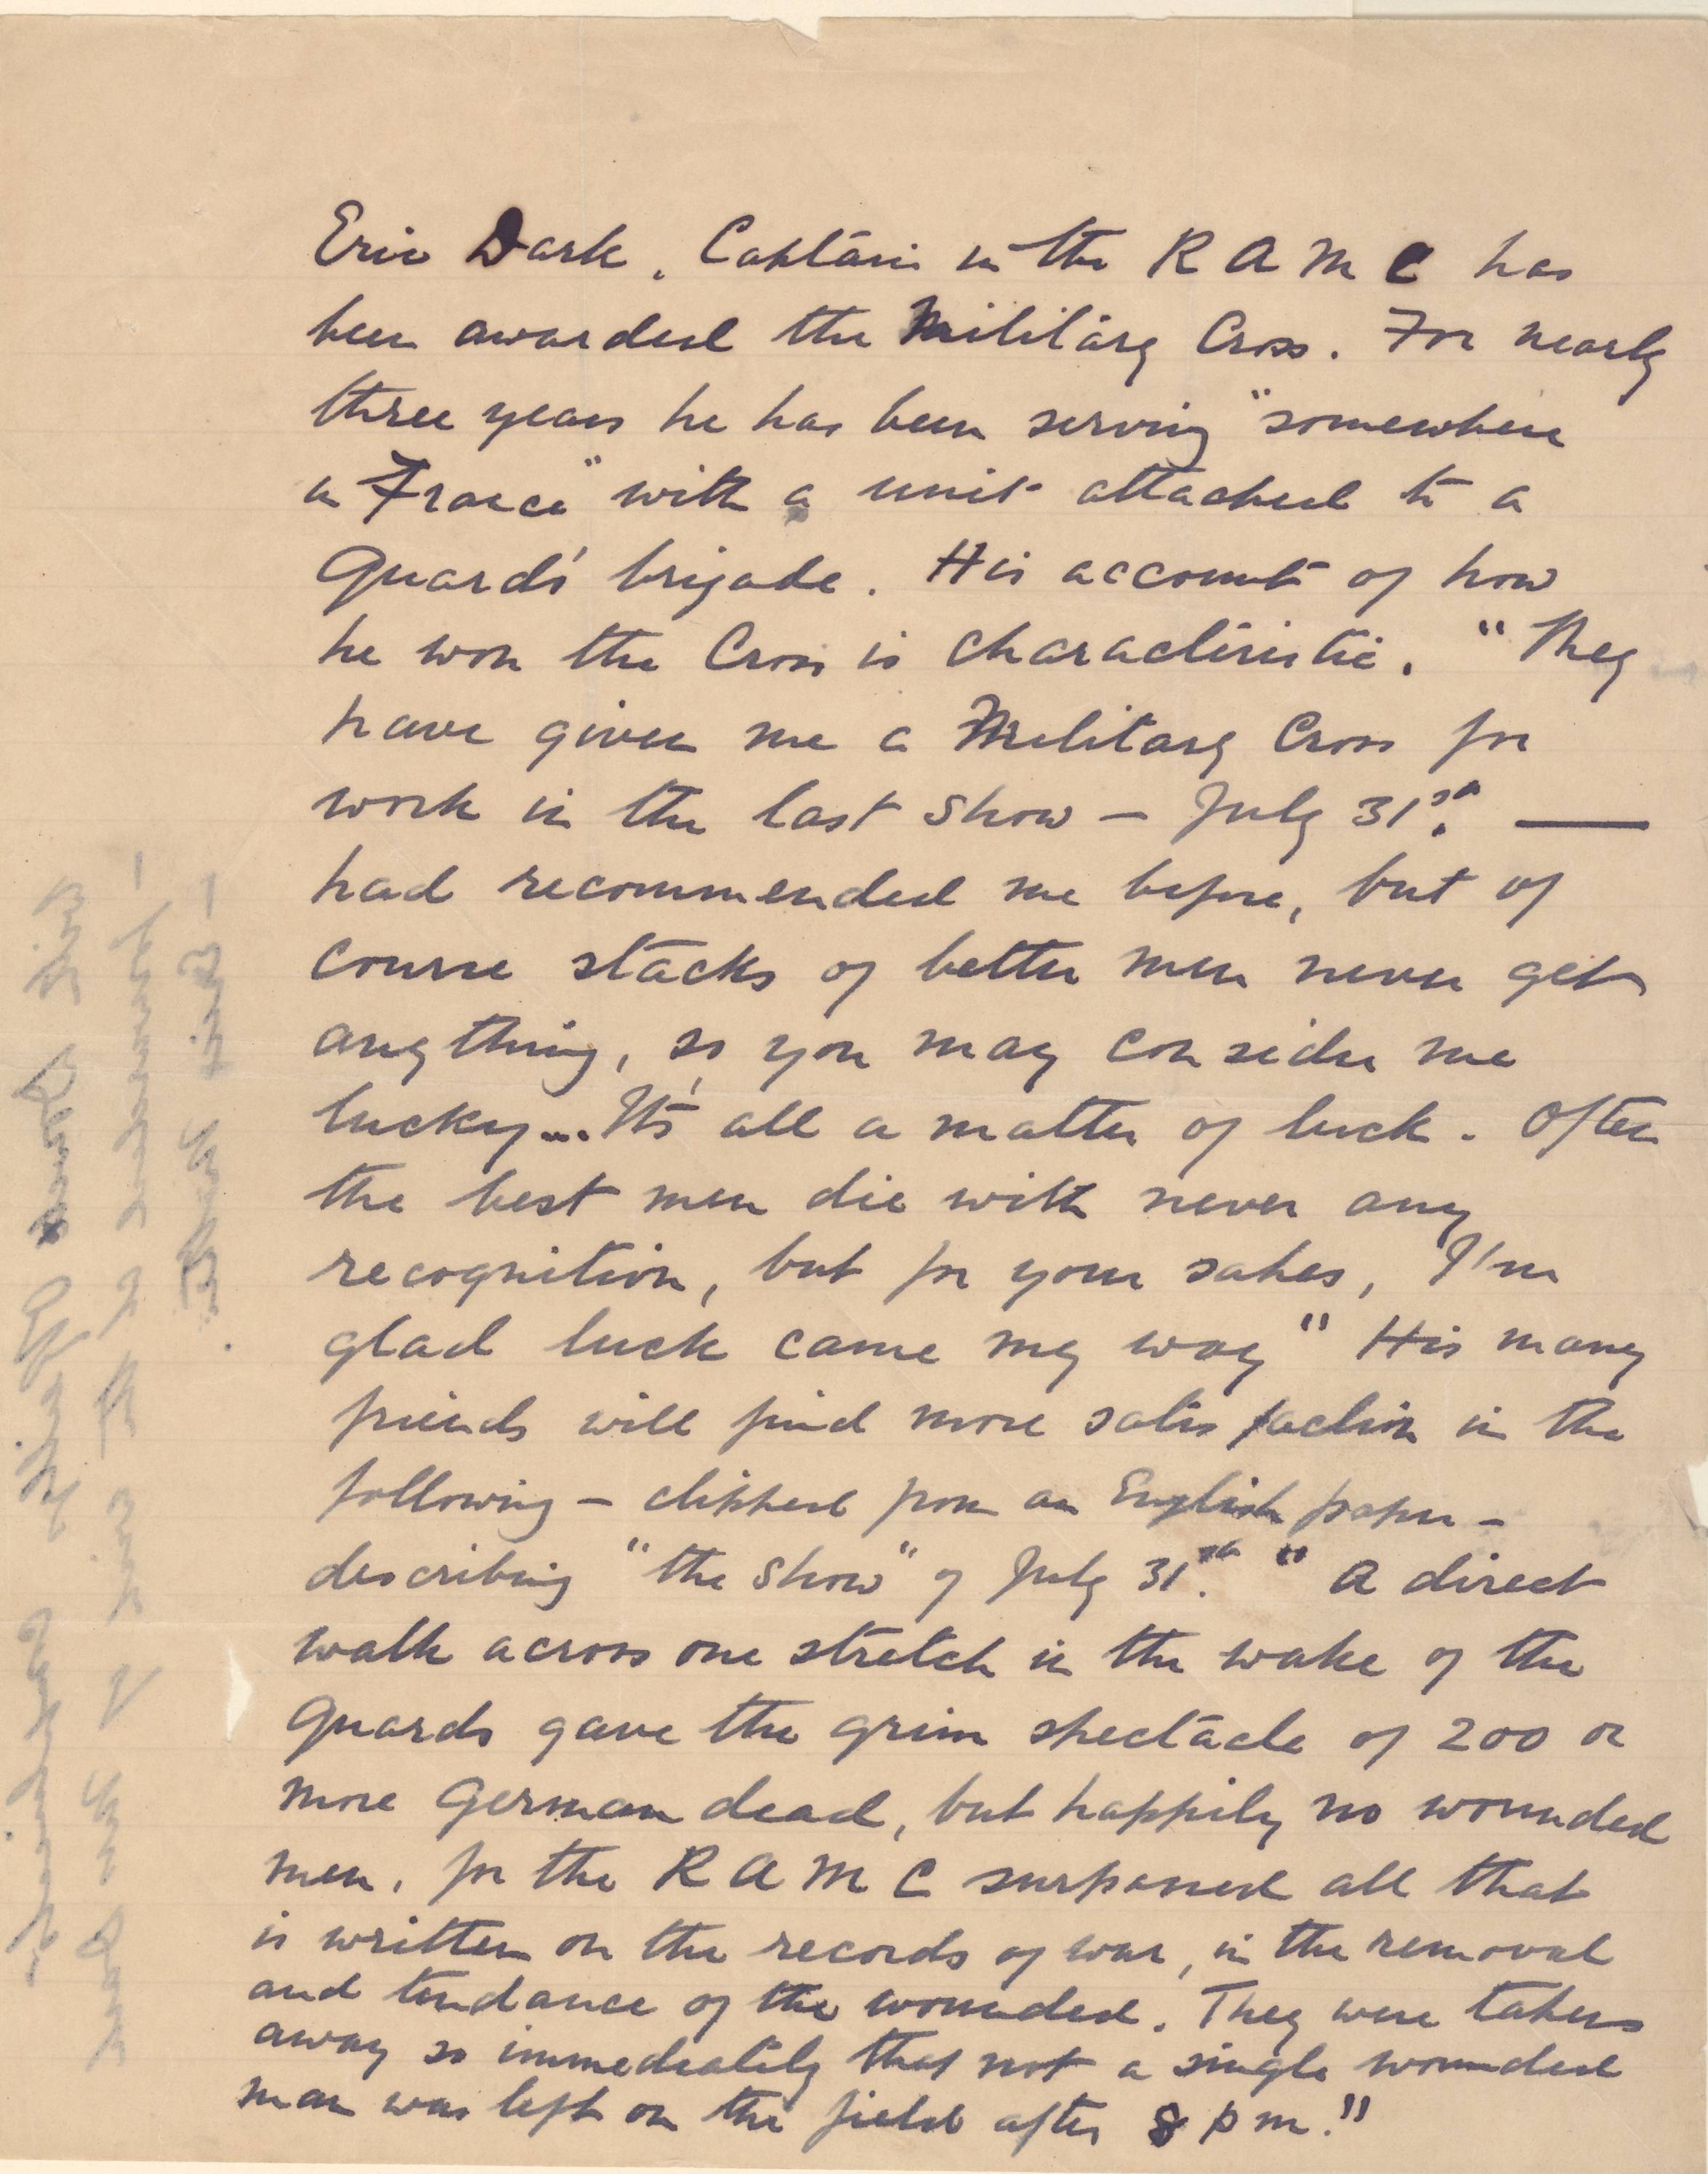 Eric Dark, Captain in the R A M C has
been awarded the Military Cross. For nearly
three years he has been serving "somewhere
in France" with a unit attached to a
Guards' brigade. His account of how
he won the Cross is characteristic. "They
have given me a Military Cross for
work in the last show – July 31st. ——
had recommended me before, but of
course stacks of better men never get
anything, so you may consider me
lucky... It's all a matter of luck. Often
the best men die with never any
recognition, but for your sakes, I'm
glad luck came my way" His many
friends will find more satisfaction in the
following – clipped from an English paper –
describing "the show" of July 31st. "A direct
walk across one stretch in the wake of the
Guards gave the grim spectacle of 200 or
more German dead, but happily no wounded
men, for the R A M C surpassed all that
is written on the records of war, in the removal
and tendance of the wounded. They were taken
away so immediately that not a single wounded
man was left on the field after 8 pm."